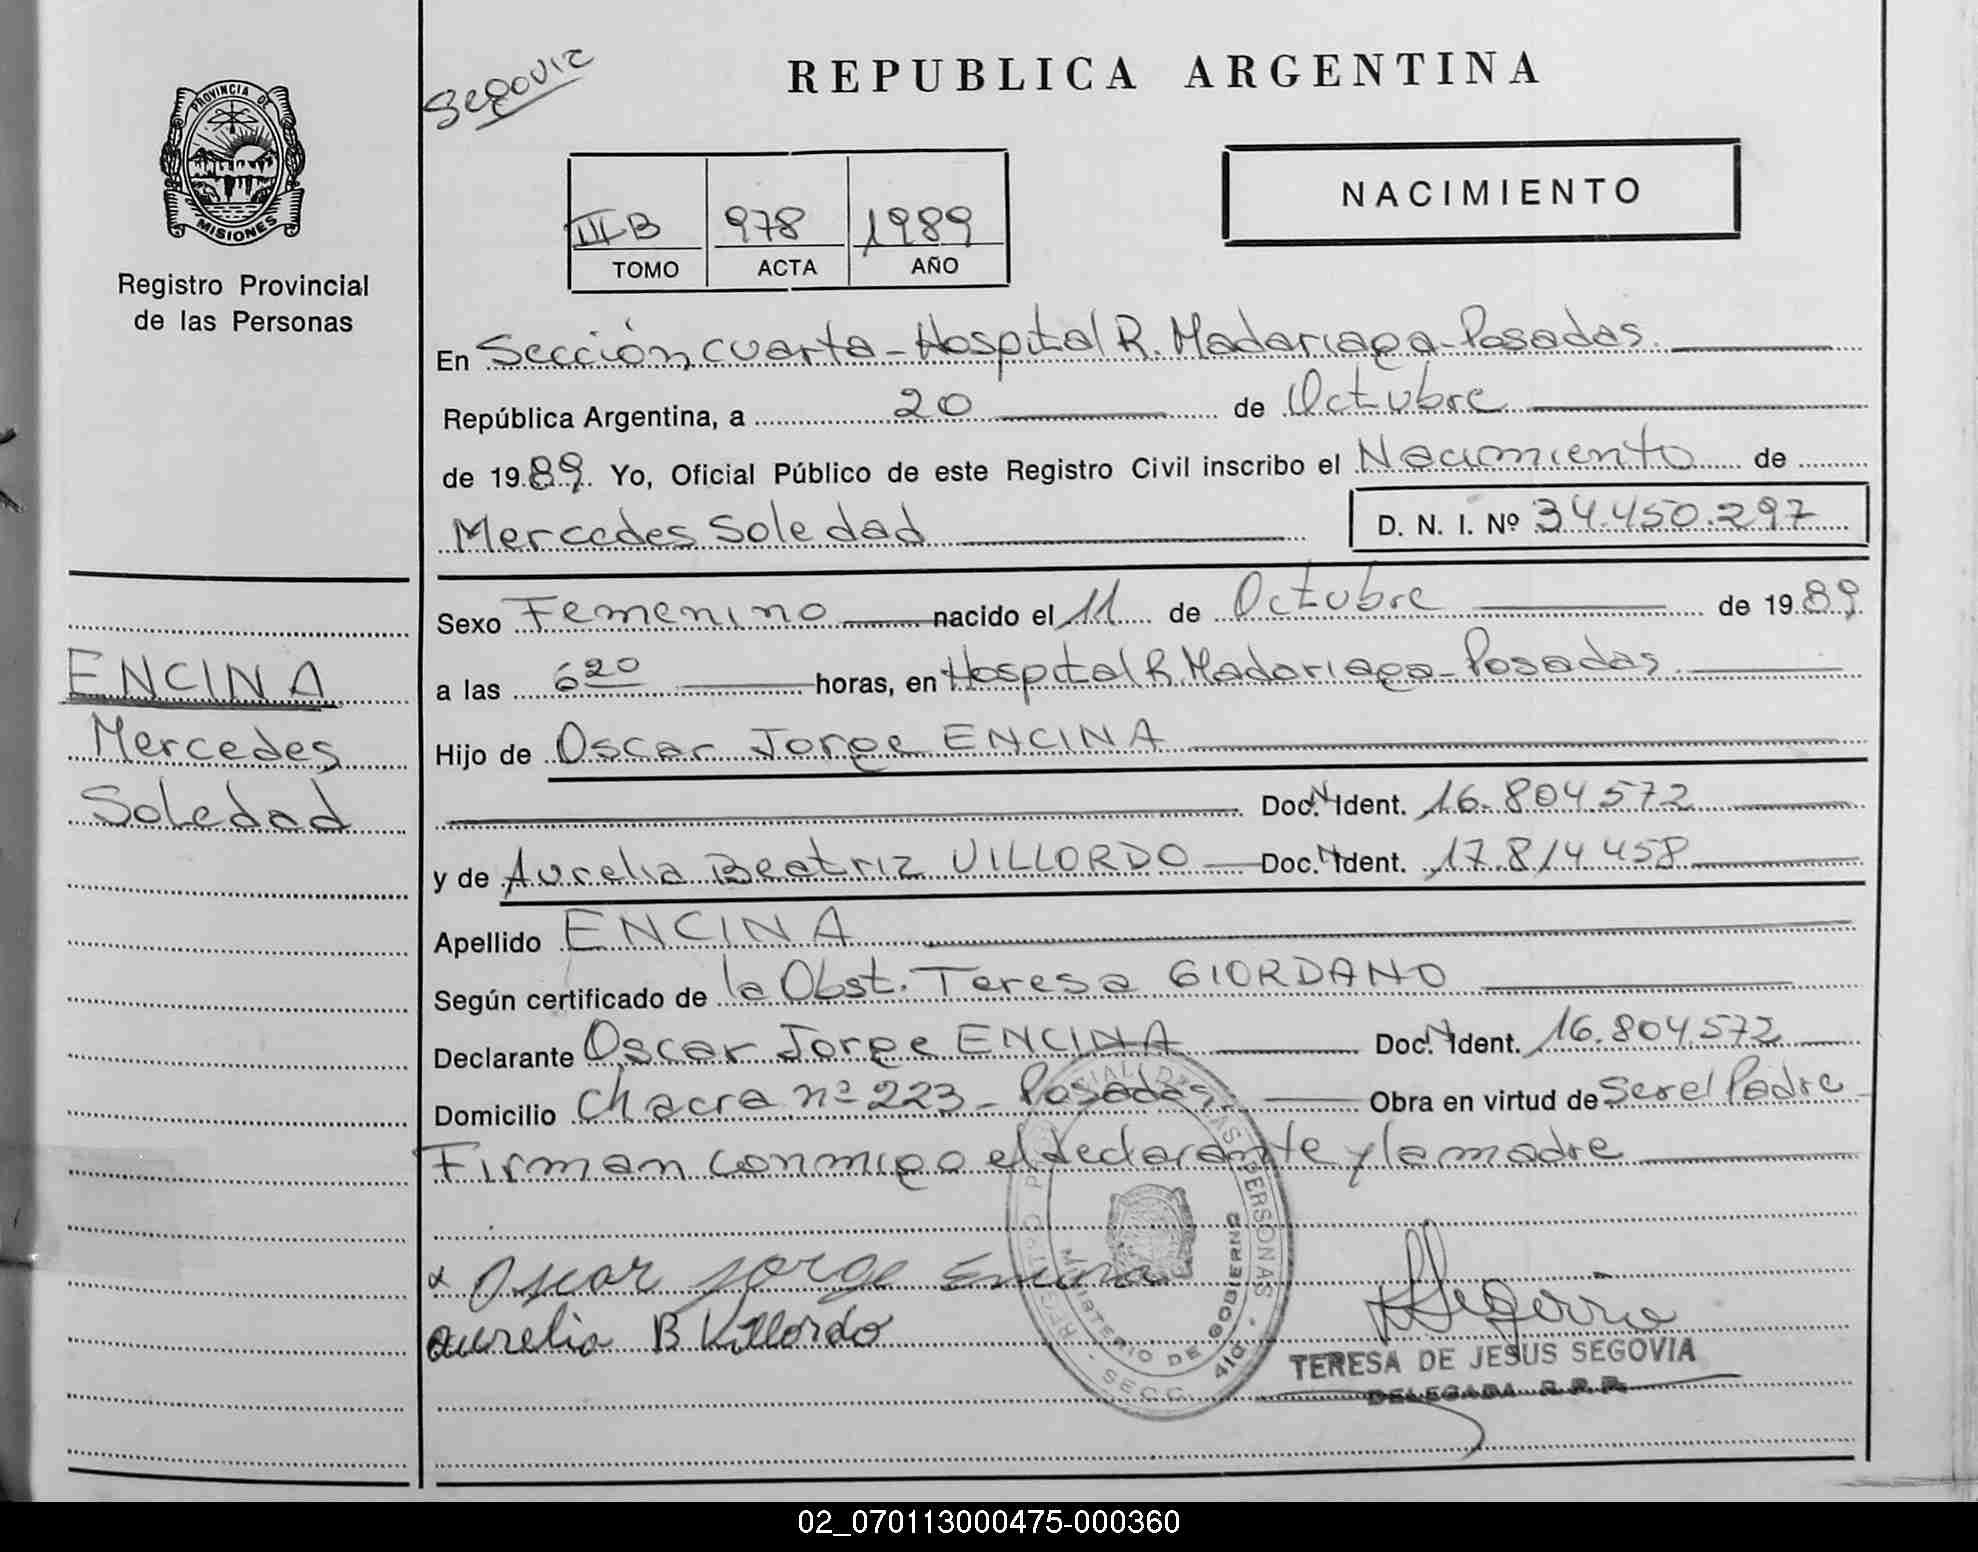 Segovia
REPUBLICA ARGENTINA
PROVINCIA DE
MISIONES
Registro Provincial
de las Personas
III B 978 1989
TOMO ACTA AÑO
NACIMIENTO
En Sección cuarta - Hospital R. Madariaga - Posadas.
República Argentina, a 20 de Octubre
de 1989. Yo, Oficial Público de este Registro Civil inscribo el Nacimiento de
Mercedes Soledad D. N. I. Nº 34.450.297
Sexo Femenino nacido el 11 de Octubre de 1989
a las 6 20 horas, en Hospital R. Madariaga - Posadas
Hijo de Oscar Jorge ENCINA
Doc. N Ident. 16.804.572
y de Aurelia Beatriz VILLORDO Doc. N Ident. 17.814.458
Apellido ENCINA
Según certificado de la Obst. Teresa GIORDANO
Declarante Oscar Jorge ENCINA Doc. N Ident. 16.804.572
Domicilio Chacra nº 223 - Posadas Obra en virtud de Ser el Padre
Firman conmigo el declarante y la madre
ENCINA
Mercedes
Soledad
Oscar Jorge Encina
Aurelia B Villordo
MINISTERIO DE GOBIERNO
- SECC. 4ta. -
TERESA DE JESUS SEGOVIA
DELEGADA R. P. P.
02_070113000475-000360